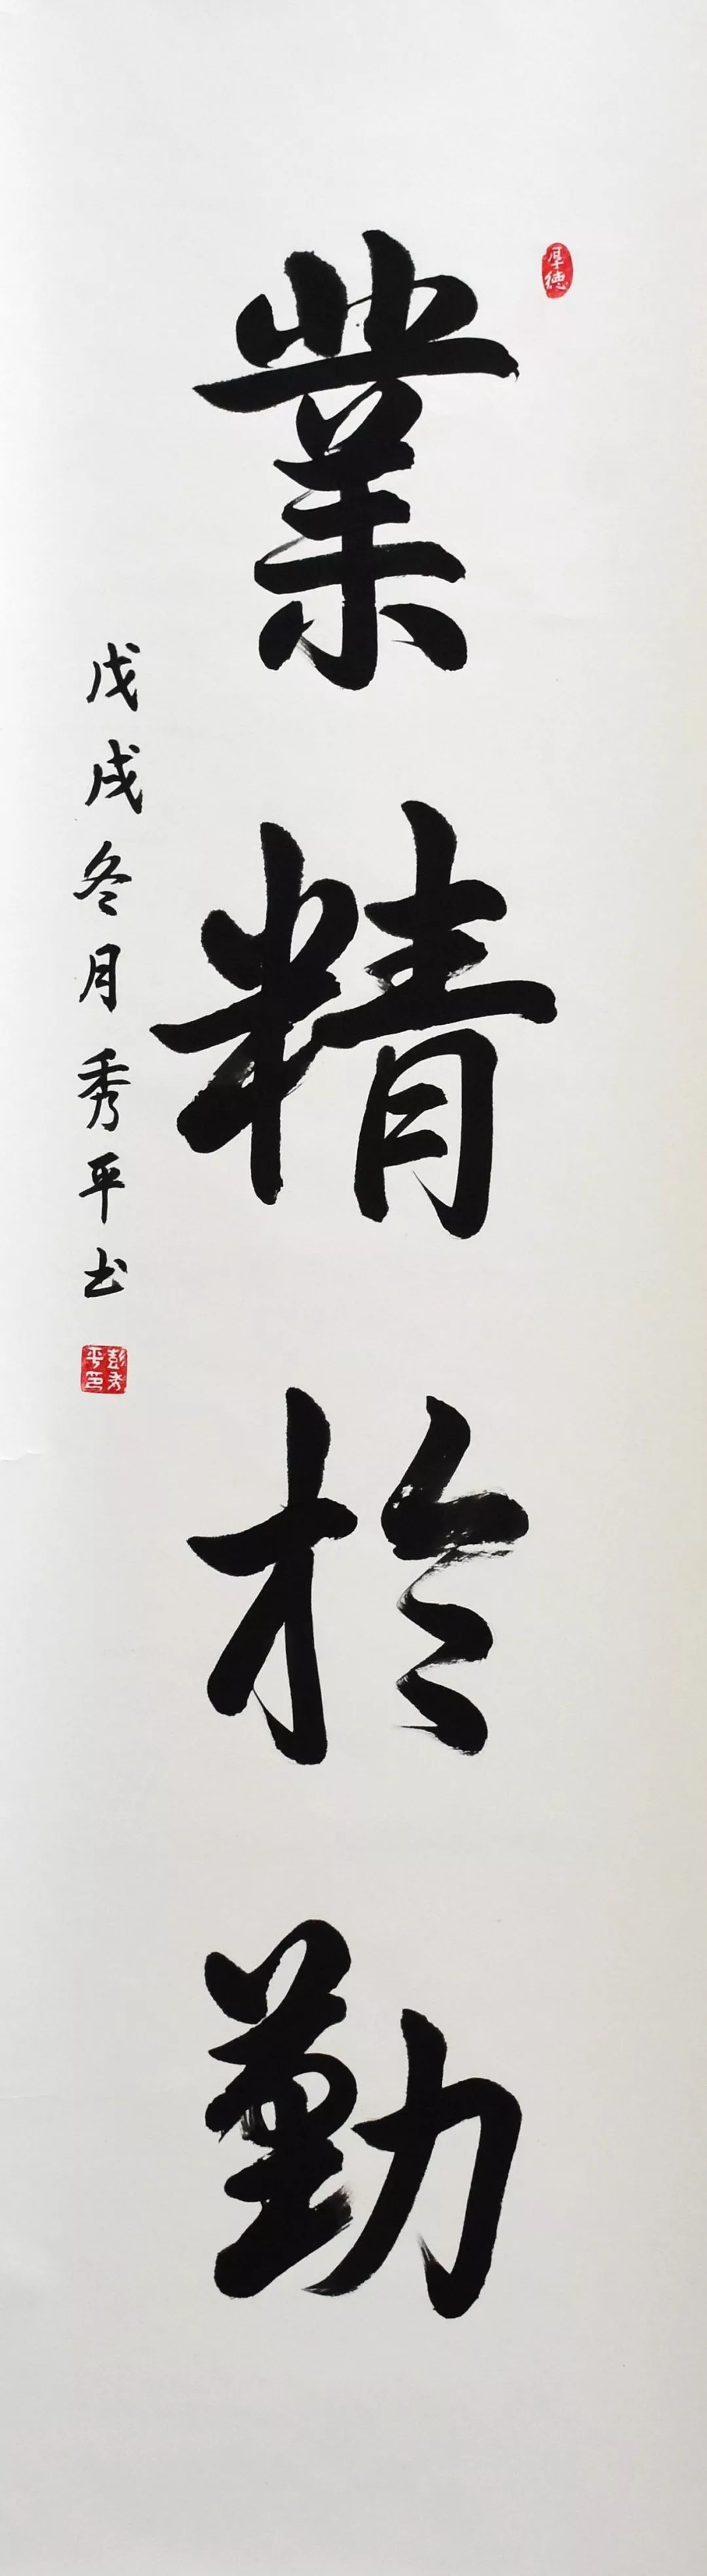 厚德
業精於勤
戊戌冬月秀平书
彭秀平印